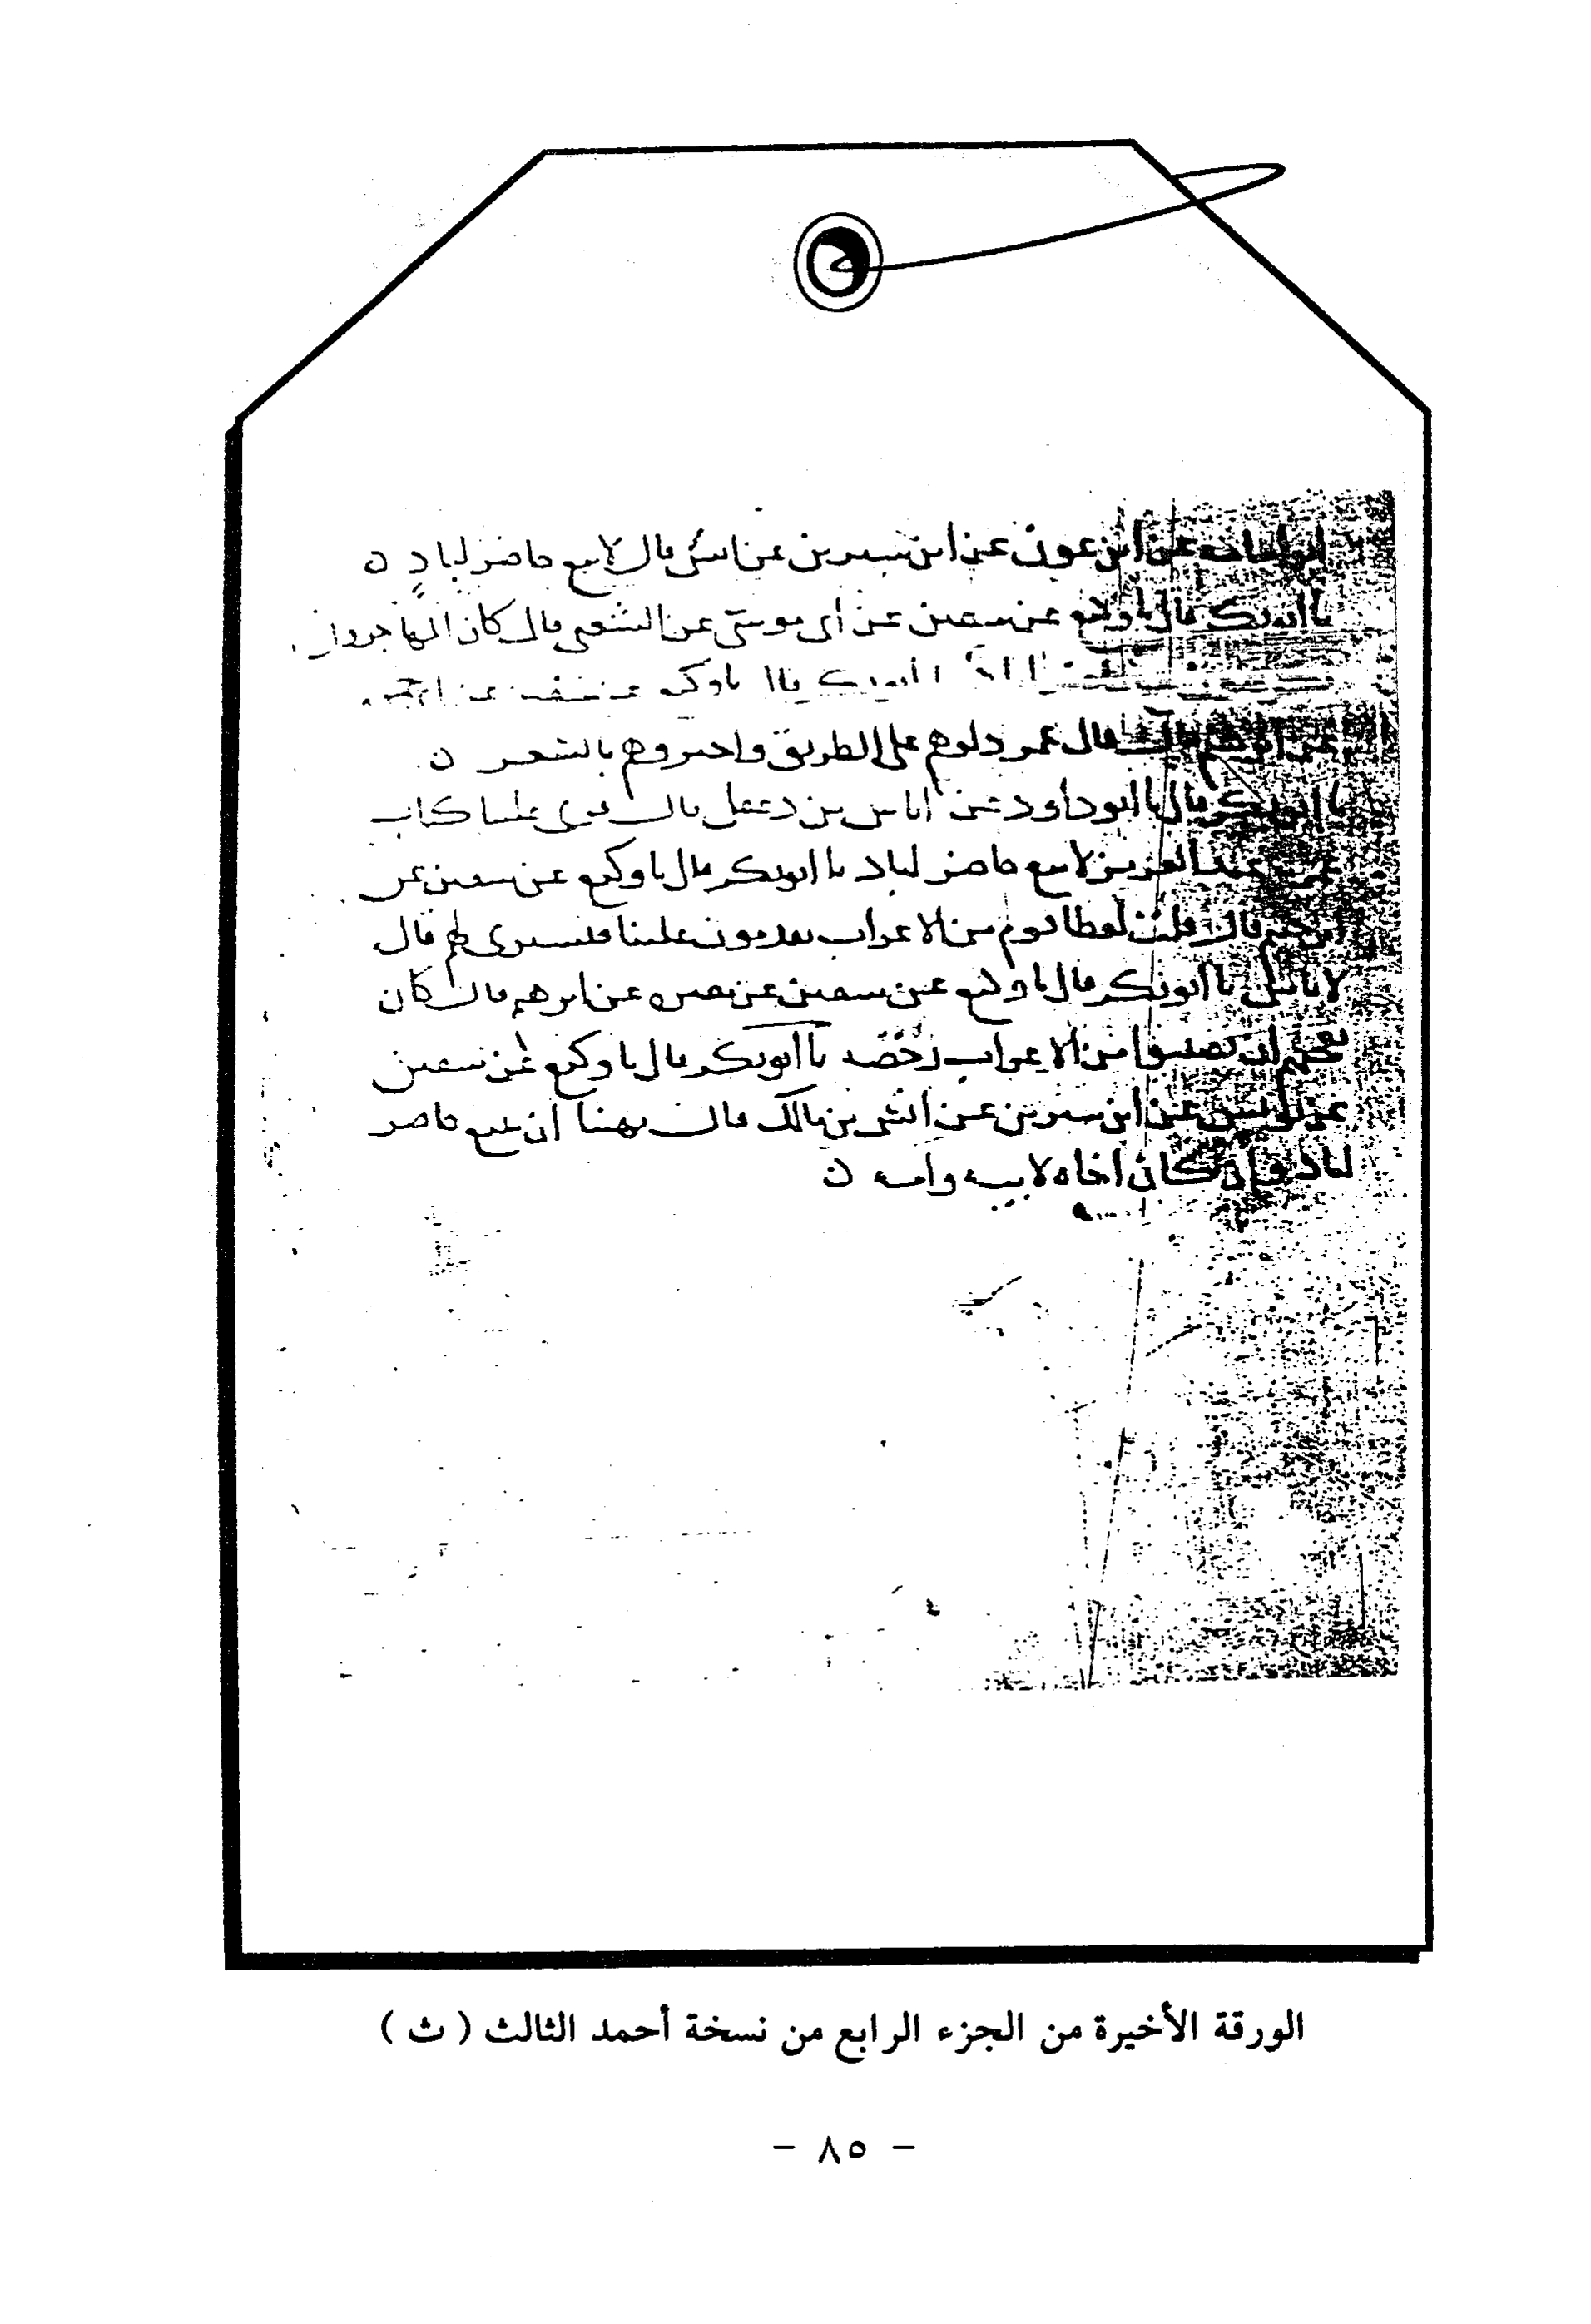 عن ابن عون عن ابن سيرين عن انس قال لا يبيع حاضر لباد ن
نا ابو بكر قال نا وكيع عن سفين عن ابى موسى عن الشعبى قال كان المهاجرون
ابو بكر قال نا وكيع عن سفين عن
عن ابرهيم قال قال عمر دلوهم على الطريق واخبروهم بالسعر ن
نا ابو بكر قال نا ابو داود عن اياس بن دغفل قال قرى علينا كتاب
عمر بن عبد العزيز لا يبيع حاضر لباد نا ابو بكر قال نا وكيع عن سفين عن
ابن خثيم قال قلت لعطا قوم من الاعراب يقدمون علينا فنشترى لهم قال
لا باس نا ابو بكر قال نا وكيع عن سفين عن مغيره عن ابرهيم قال كان
يعجبهم ان يصيبوا من الاعراب رخصه نا ابو بكر قال نا وكيع عن سفين
عن يونس عن ابن سيرين عن انس بن مالك قال نهينا ان يبيع حاضر
لباد وان كان اخاه لابيه وامه ن
الورقة الأخيرة من الجزء الرابع من نسخة أحمد الثالث ( ث )
- ٨٥ -